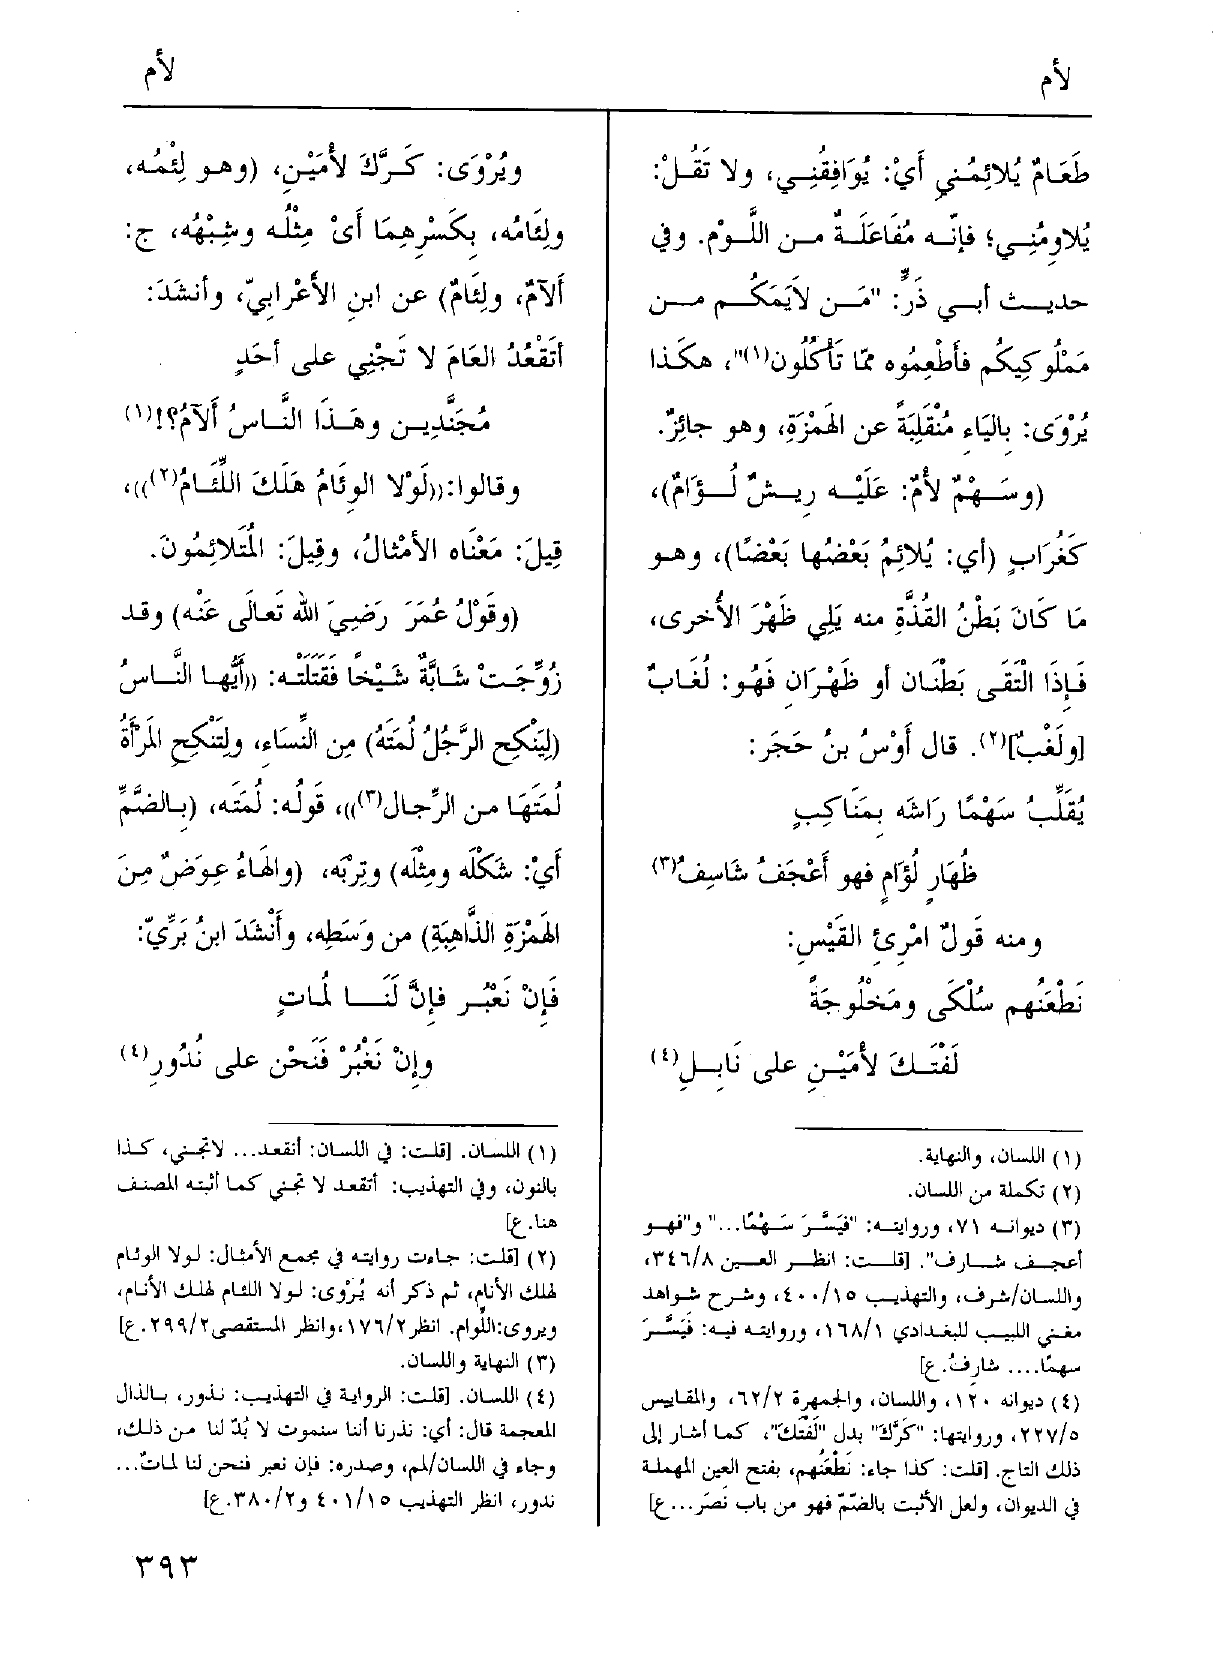 لأم
لأم
طَعَامٌ يُلائِمُني أيْ: يُوَافِقُنِي، ولا تَقُلْ:
يُلاوِمُنِي؛ فإنّه مُفَاعَلَةٌ من اللَّوْمِ. وفي
حديث أبي ذَرٍّ: "مَن لاَيَمَكُم من
مَمْلُوكِيكُم فأَطْعِمُوه مما تَأْكُلُون(١)"، هكذا
يُرْوَى: بالياءِ مُنْقَلِبَةً عن الهَمْزَةِ، وهو جائِزٌ.
(وسَهْمٌ لأْمٌ: عَلَيْه رِيشٌ لُؤَامٌ)،
كَغُرَابٍ (أي: يُلائِمُ بَعْضُها بَعْضًا)، وهو
مَا كَانَ بَطْنُ القُذَّةِ منه يَلِي ظَهْرَ الأُخرى،
فَإِذَا الْتَقَى بَطْنَان أو ظَهْرَانِ فَهُو: لُغَابٌ
[ولَغْبٌ](٢). قال أَوْسُ بنُ حَجَر:
يُقَلِّبُ سَهْمًا رَاشَه بِمَنَاكِبٍ
ظُهَارٍ لُؤَامٍ فهو أَعْجَفُ شَاسِفُ(٣)
ومنه قَولُ امْرِئِ القَيْسِ:
نَطْعَنُهم سُلْكَى ومَخْلُوجَةً
لَفْتَكَ لأْمَيْنِ على نَابِلِ(٤)
(١) اللسان، والنهاية.
(٢) تكملة من اللسان.
(٣) ديوانه ٧١، وروايته: "فَيَسَّرَ سَهْمًا..." و"فهو
أعجف شارف". [قلت: انظر العين ٣٤٦/٨،
واللسان/شرف، والتهذيب ٤٠٠/١٥، وشرح شواهد
مغني اللبيب للبغدادي ١٦٨/١، وروايته فيه: فَيَسَّرَ
سهمًا.... شارفُ. ع]
(٤) ديوانه ١٢٠، واللسان، والجمهرة ٦٢/٢، والمقاييس
٢٢٧/٥، وروايتها: "كَرَّكَ" بدل "لَفْتَكَ"، كما أشار إلى
ذلك التاج. [قلت: كذا جاء: نَطْعَنُهم، بفتح العين المهملة
في الديوان، ولعل الأثبت بالضّمّ فهو من باب نصَر...ع]
ويُرْوَى: كَرَّكَ لأْمَيْنِ، (وهو لِئْمُه،
ولِئَامُه، بِكَسْرِهِمَا أىْ مِثْلُه وشِبْهُه، ج:
ألآمٌ، ولِئَامٌ) عن ابنِ الأعْرابيّ، وأنشَدَ:
أتَقْعُدُ العَامَ لا تَجْنِي على أحَدٍ
مُجَنَّدِين وهَذَا النَّاسُ ألآمُ؟!(١)
وقالوا:((لَوْلا الوِئَامُ هَلَكَ اللِّئَامُ(٢)))،
قِيلَ: مَعْنَاه الأمْثالُ، وقِيلَ: المُتَلائِمُونَ.
(وقَوْلُ عُمَرَ رَضِيَ الله تَعالَى عَنْه) وقد
زُوِّجَتْ شابَّةٌ شَيْخًا فقَتَلَتْه: ((أيُّها النَّاسُ
(لِيَنْكِحِ الرَّجُلُ لُمَتَهُ) مِن النِّسَاءِ، ولتَنْكِحِ المَرْأَةُ
لُمَتَهَا من الرِّجال(٣)))، قَولُه: لُمَتَه، (بالضَّمِّ
أيْ: شَكْلَه ومِثْلَه) وتِرْبَه، (والهَاءُ عِوَضٌ مِنَ
الهَمْزَةِ الذَّاهِبَةِ) من وَسَطِه، وأَنْشَدَ ابنُ بَرِّيّ:
فَإِنْ نَعْبُر فإنَّ لَنَا لُمَاتٍ
وإِنْ نَغْبُرْ فَنَحْن على نُذُورِ(٤)
(١) اللسان. [قلت: في اللسان: أنقعد... لانجني، كذا
بالنون، وفي التهذيب: أتقعد لا تجني كما أثبته المصنف
هنا. ع]
(٢) [قلت: جاءت روايته في مجمع الأمثال: لولا الوئام
لهلك الأنام، ثم ذكر أنه يُرْوى: لولا اللئام لهلك الأنام،
ويروى:اللُّوام. انظر١٧٦/٢،وانظر المستقصى٢٩٩/٢.ع]
(٣) النهاية واللسان.
(٤) اللسان. [قلت: الرواية في التهذيب: نذور، بالذال
المعجمة قال: أي: نذرنا أننا سنموت لا بُدّ لنا من ذلك،
وجاء في اللسان/لمم، وصدره: فإن نعبر فنحن لنا لماتٌ...
ندور، انظر التهذيب ٤٠١/١٥ و٣٨٠/٢.ع]
٣٩٣